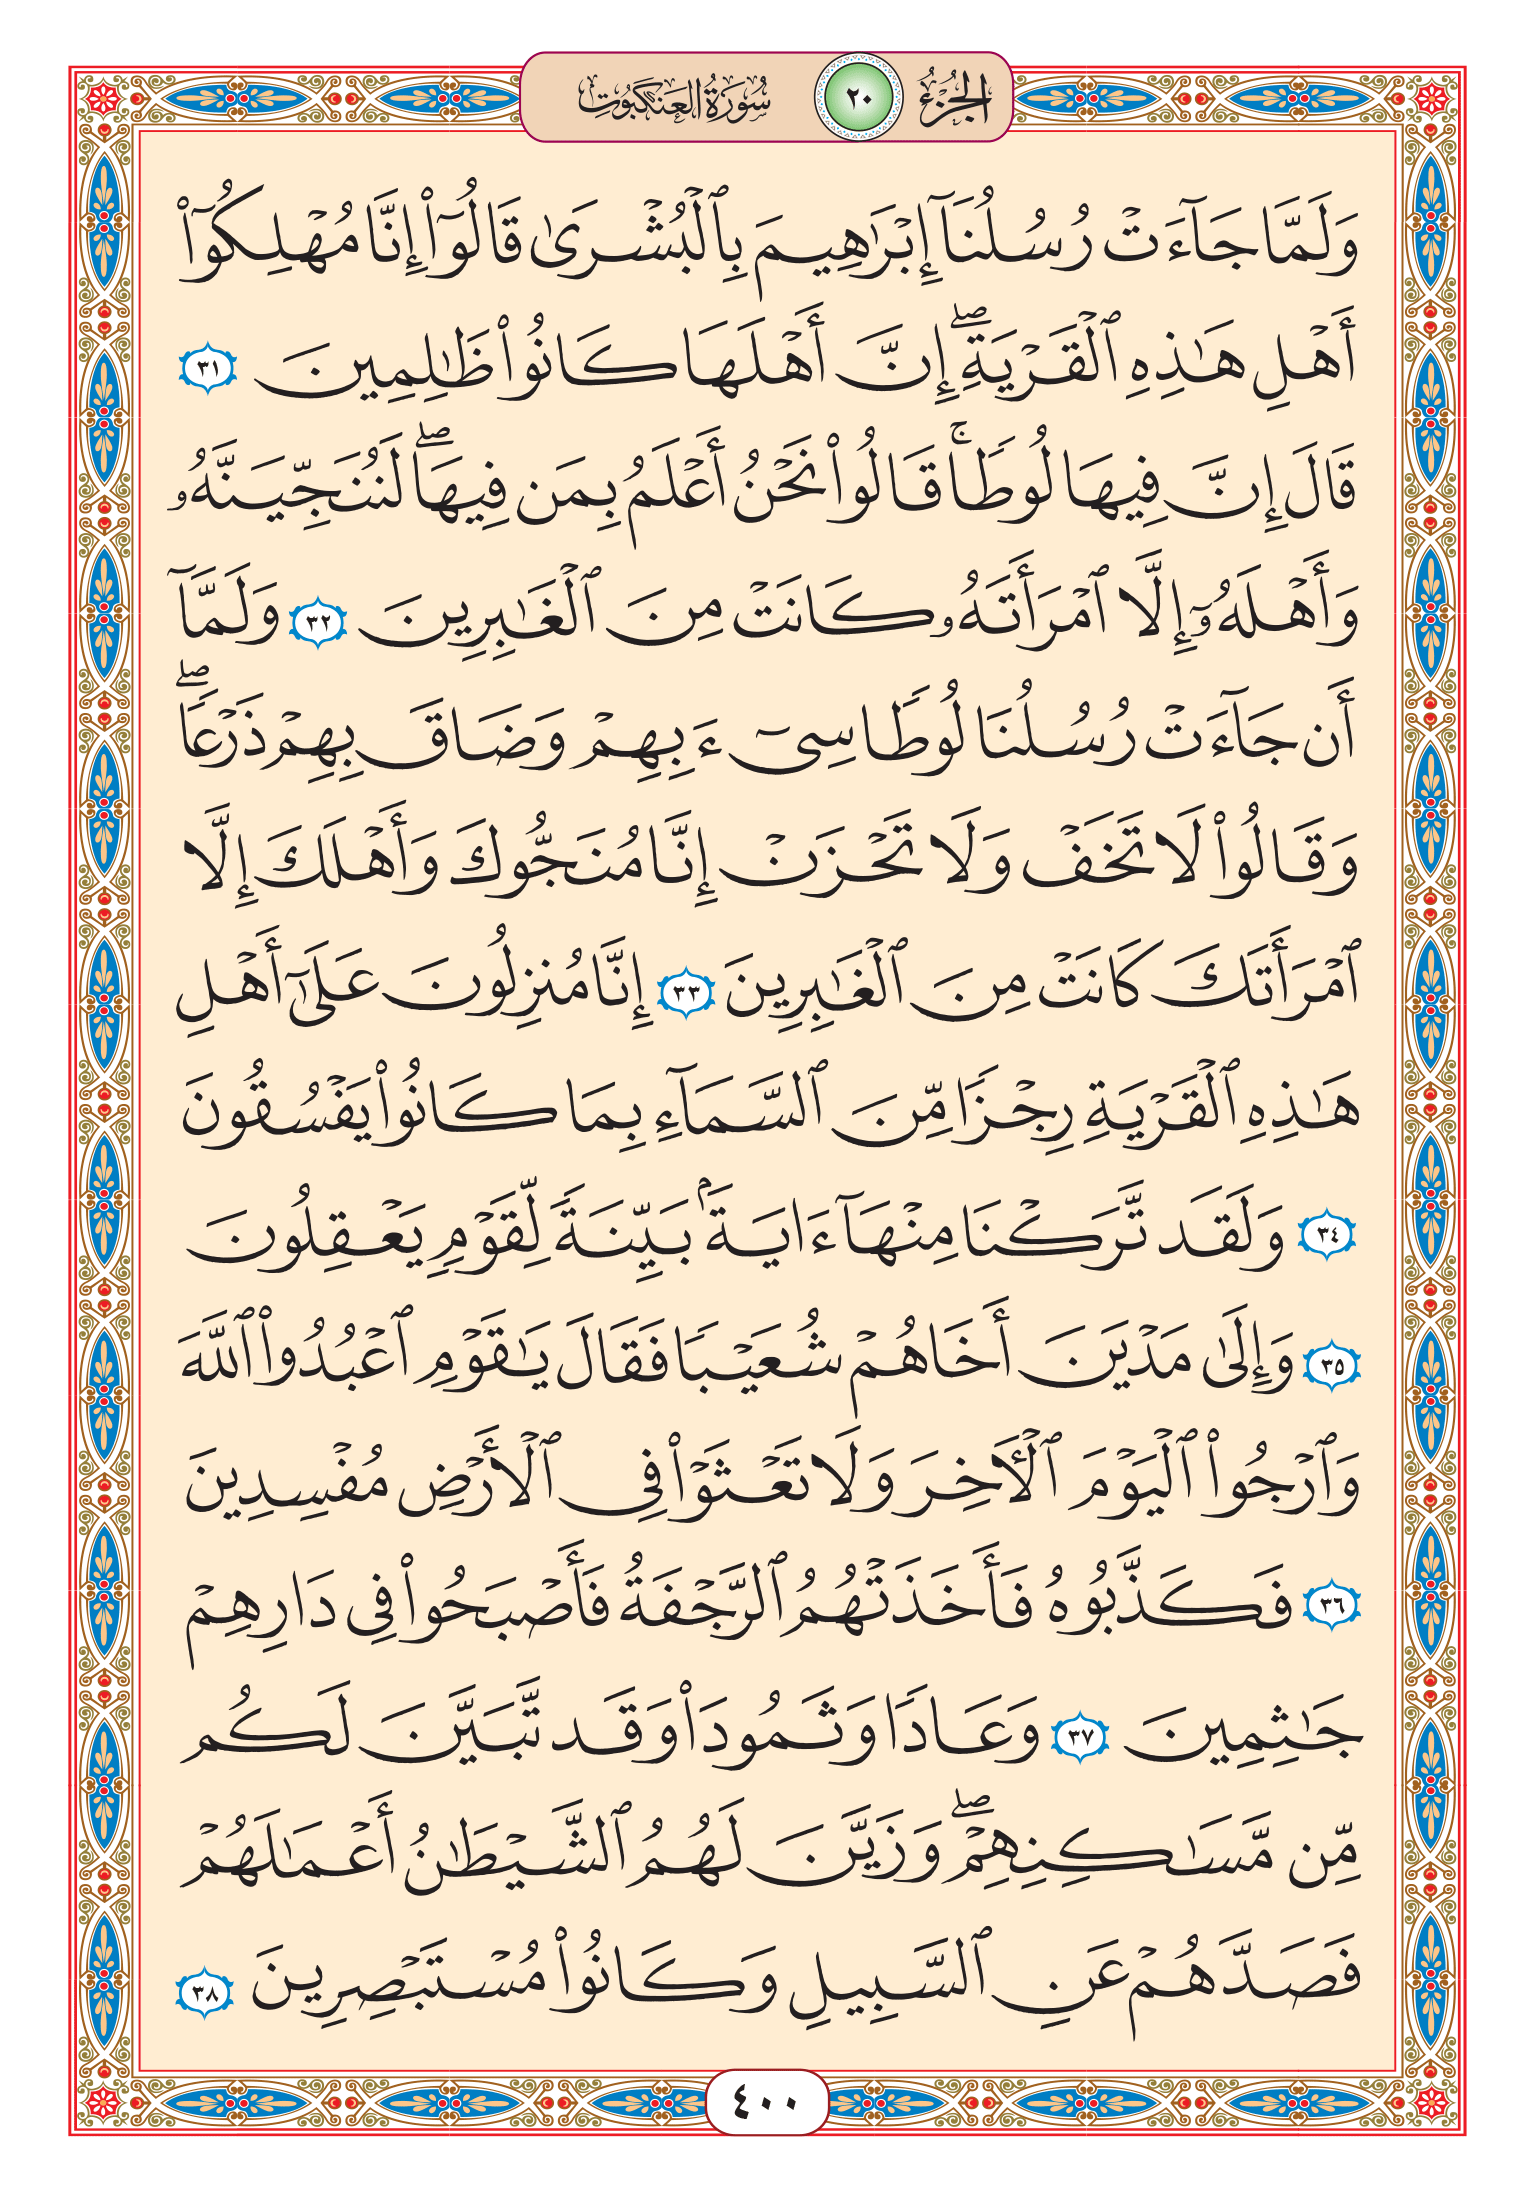 الجزء ٢٠ سورة العنكبوت
وَلَمَّا جَآءَتْ رُسُلُنَآ إِبْرَٰهِيمَ بِٱلْبُشْرَىٰ قَالُوٓا۟ إِنَّا مُهْلِكُوٓا۟
أَهْلِ هَٰذِهِ ٱلْقَرْيَةِ ۖ إِنَّ أَهْلَهَا كَانُوا۟ ظَٰلِمِينَ ٣١
قَالَ إِنَّ فِيهَا لُوطًا ۚ قَالُوا۟ نَحْنُ أَعْلَمُ بِمَن فِيهَا ۖ لَنُنَجِّيَنَّهُۥ
وَأَهْلَهُۥٓ إِلَّا ٱمْرَأَتَهُۥ كَانَتْ مِنَ ٱلْغَٰبِرِينَ ٣٢ وَلَمَّآ
أَن جَآءَتْ رُسُلُنَا لُوطًا سِىٓءَ بِهِمْ وَضَاقَ بِهِمْ ذَرْعًا ۖ
وَقَالُوا۟ لَا تَخَفْ وَلَا تَحْزَنْ إِنَّا مُنَجُّوكَ وَأَهْلَكَ إِلَّا
ٱمْرَأَتَكَ كَانَتْ مِنَ ٱلْغَٰبِرِينَ ٣٣ إِنَّا مُنزِلُونَ عَلَىٰٓ أَهْلِ
هَٰذِهِ ٱلْقَرْيَةِ رِجْزًا مِّنَ ٱلسَّمَآءِ بِمَا كَانُوا۟ يَفْسُقُونَ
٣٤ وَلَقَد تَّرَكْنَا مِنْهَآ ءَايَةًۢ بَيِّنَةً لِّقَوْمٍ يَعْقِلُونَ
٣٥ وَإِلَىٰ مَدْيَنَ أَخَاهُمْ شُعَيْبًا فَقَالَ يَٰقَوْمِ ٱعْبُدُوا۟ ٱللَّهَ
وَٱرْجُوا۟ ٱلْيَوْمَ ٱلْءَاخِرَ وَلَا تَعْثَوْا۟ فِى ٱلْأَرْضِ مُفْسِدِينَ
٣٦ فَكَذَّبُوهُ فَأَخَذَتْهُمُ ٱلرَّجْفَةُ فَأَصْبَحُوا۟ فِى دَارِهِمْ
جَٰثِمِينَ ٣٧ وَعَادًا وَثَمُودَا۟ وَقَد تَّبَيَّنَ لَكُم
مِّن مَّسَٰكِنِهِمْ ۖ وَزَيَّنَ لَهُمُ ٱلشَّيْطَٰنُ أَعْمَٰلَهُمْ
فَصَدَّهُمْ عَنِ ٱلسَّبِيلِ وَكَانُوا۟ مُسْتَبْصِرِينَ ٣٨
٤٠٠